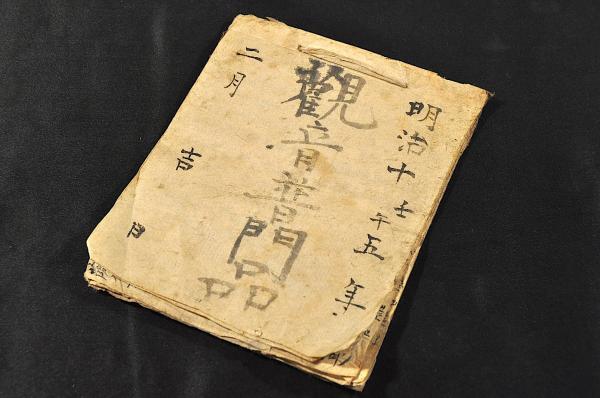 明治十壬午五年
觀音普門品
二月吉日